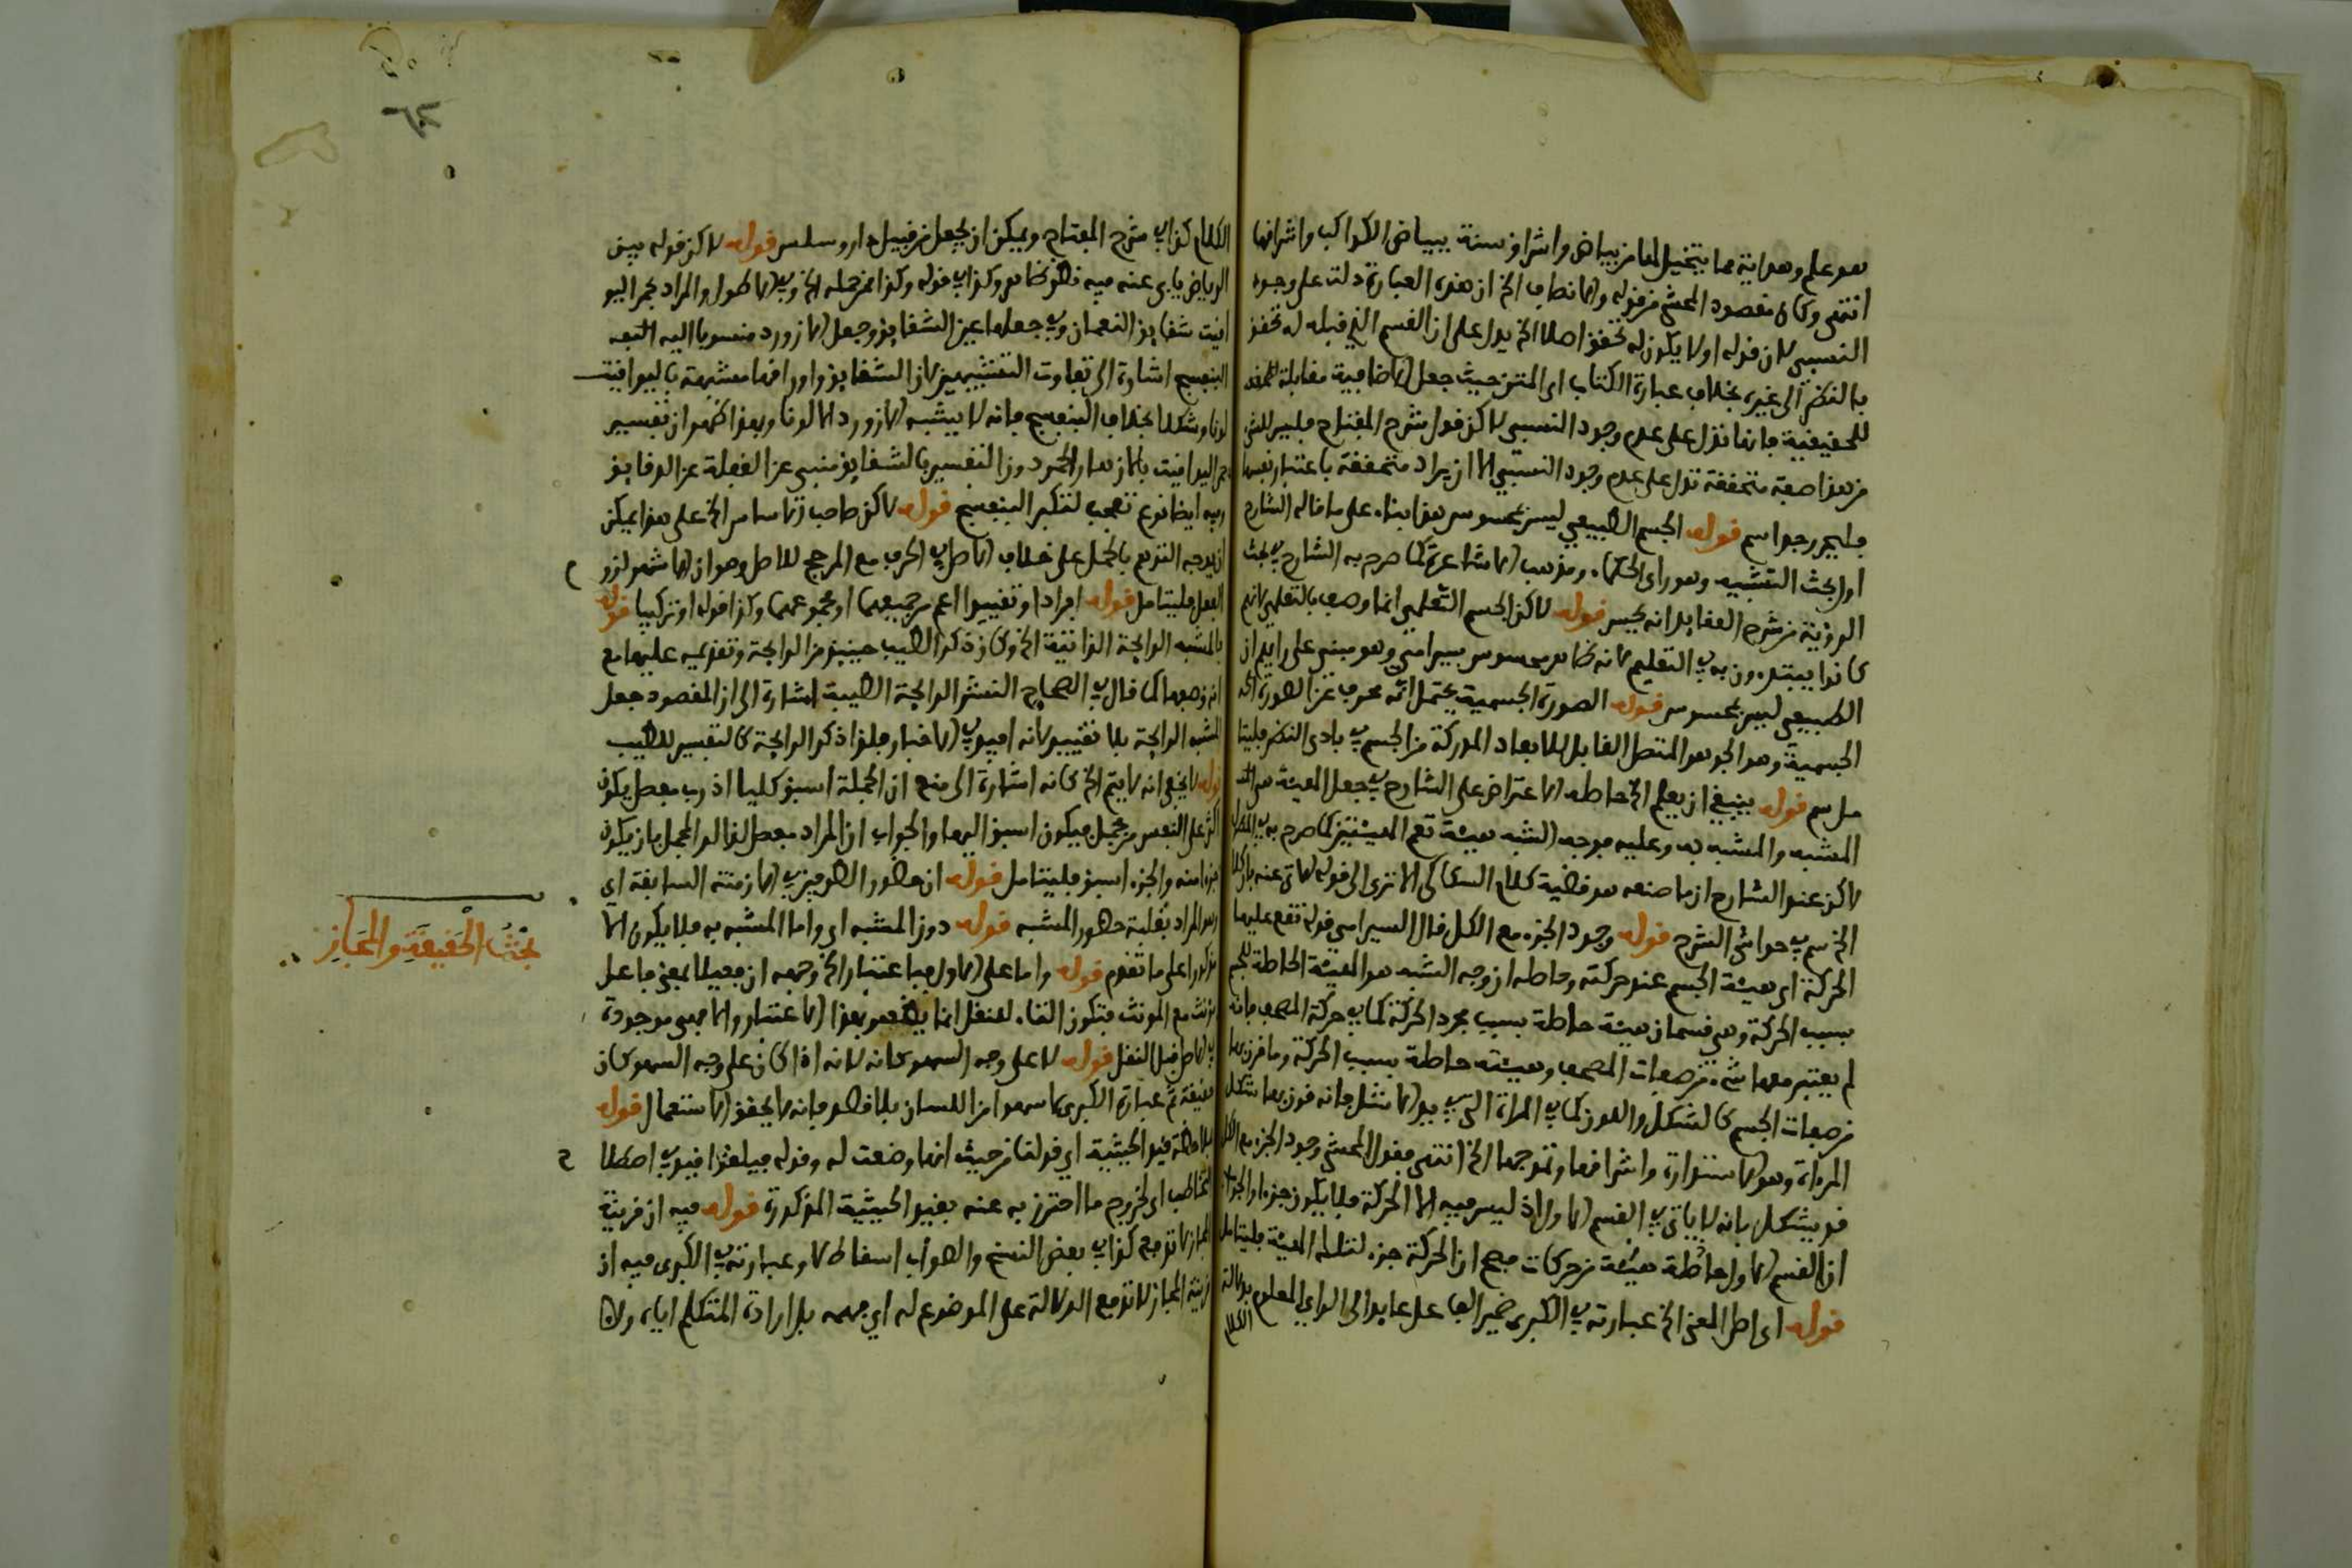 هو علم وهداية مما يتخيل لها من بياض واشراق سنة ببياض الكواكب واشرافها
انتهى وكان مقصود المحشي من قوله والانصاف الخ ان هذه العبارة دلت على وجود
النسبي لان قوله اولا يكون له تحقق اصلا الخ يدل على ان القسم الذي قبله له تحقق
بالنظر الى غيره بخلاف عبارة الكتاب اى المتن حيث جعل الاضافية مقابلة
للحقيقية فانها تدل على عدم وجود النسبي لاكن قول شرح المفتاح
من هذا صفة متحققة تدل على عدم وجود النسبي الا ان يراد متحققة باعتبار نفسها
قوله الجسم الطبيعي ليس بمحسوس هذا بناء على ما قاله الشارح
اول بحث التشبيه وهو راى الحكماء ومذهب الاشاعرة كما صرح به الشارح في بحث
الرؤية من شرح العقايد انه يحس قوله لاكن الجسم التعليمي انما وصف بالتعليمي لانهم
كانوا يبتدءون به في التعليم لانه ظاهر محسوس سيرامي وهو مبني على رايه ان
الطبيعي ليس بمحسوس قوله الصورة الجسمية يحتمل انه محرف عن الصورة
الجسمية وهو الجوهر المتصل القابل للابعاد المدركة من الجسم في بادى النظر
قوله ينبغي ان يعلم الخ حاصله الاعتراض على الشارح في جعل الهيئة
المشبه والمشبه به وعليه فوجه الشبه هيئة تعم الهيئتين كما صرح به في المطول
لاكن عذر الشارح ان ما صنعه هو قضية كلام السكاكى الا ترى الى قوله
في حواشى الشرح قوله وجود الجزء مع الكل قال السيرامى قوله تقع عليها
الحركة اى هيئة الجسم عند حركته وحاصله ان وجه الشبه هو الهيئة الحاصلة للجسم
بسبب الحركة وهي قسمان هيئة حاصلة بسبب مجرد الحركة كما في حركة المصحف فانه
لم يعتبر معها شيء من صفات المصحف وهيئة حاصلة بسبب الحركة وما قرن بها
من صفات الجسم كالشكل واللون كما في المراة التي في يد الاشل فانه قرن بها شكل
المراة وهو الاستدارة واشرافها وتموجها الخ انتهى فقول المحشي وجود الجزء مع الكل
قد يشكل بانه لا ياتى في القسم الاول اذ ليس فيه الا الحركة فلا يكون جزءا
ان القسم الاول حاصلة هيئة من حركات فصح ان الحركة جزء لتلك الهيئة فليتامل
قوله اى اصل المعنى الخ عبارته في الكبرى ضمير الفاعل عايد الى الراى المعلوم بدلالة
الكلام
الكلام كذا في شرح المفتاح ويمكن ان يجعل من قبيل قوله لاكن قوله بين
الرياض يابى عنه فيه نظر ظاهر وكذا في قوله وكذا من جملة الخ وفي الاطول والمراد بحمر اليو
اقيت شقايق النعمان وفي جعلها عين الشقايق وجعل لازورد منسوبا اليه
البنفسج اشارة الى تفاوت التشبيهين لان الشقايق واوراقها مشبهة باليواقيت
لونا وشكلا بخلاف البنفسج فانه لا يشبه لازورد الا لونا وبهذا ظهر ان تفسير
حمر اليواقيت بالازهار الحمر دون التفسير بالشقايق منبى عن الغفلة عن الدقايق
وفيه ايضا نوع تعجب لتكبر البنفسج قوله لاكن صاحب الاساس الخ على هذا يمكن
ان يوجه التوهم بالحمل على خلاف الاصل في الحرف مع المرجح للاصل وهو ان الاشهر لزو
الفعل فليتامل قوله افرادا وتقييدا اعم من جميعها او مجموعها وكذا قوله او تركيبا قوله
بالمشبه الرايحة الذاتية الخ وكان ذكر الطيب حينيذ مع الرايحة وتقديمه عليها مع
انه وصفها كما قال في الصحاح النشر الرايحة الطيبة اشارة الى ان المقصود جعل
المشبه الرايحة بلا تقييد لانه افيد في الاخبار فلذا ذكر الرايحة كالتفسير للطيب
قوله لا يخفى انه لا يتم الخ كانه اشارة الى منع ان الجملة اسبق كليا اذ رب مفصل يكون
على النفس من مجمل فيكون اسبق اليها والجواب ان المراد مفصل لذلك المجمل بان يكون
جزءا منه والجزء اسبق فليتامل قوله ان حضور الطرفين في الازمنة السابقة اى
وهو المراد بغلبة حضور المشبه قوله دون المشبه اى واما المشبه به فلا يكون الا
مذكورا على ما تقدم قوله واما على الاول فباعتبار الخ وجهه ان فعيلا بمعنى فاعل
يونث مع المونث فتكون التاء للنقل انما يظهر بهذا الاعتبار والا فهى موجودة
في الاصل قبل النقل قوله لا على وجه السهو كانه لانه اذا كان على وجه السهو كان
حقيقة ثم عبارة الكبرى لا سهوا من اللسان بلا قصد فانه لا يحقق الاستعمال قوله
بملاحظة قيد الحيثية اي قولنا من حيث انها وضعت له وقوله فيلغوا قيد في اصطلا
التخاطب اى لخروج ما احترز به عنه بقيد الحيثية المذكورة قوله فيه ان قرينة
المجاز لا تدفع كذا في بعض النسخ والصواب اسقاط لا وعبارته في الكبرى فيه ان
قرينة المجاز لا تدفع الدلالة على الموضوع له اي فهمه بل ارادة المتكلم اياه ولان
بحث الحقيقة والمجاز